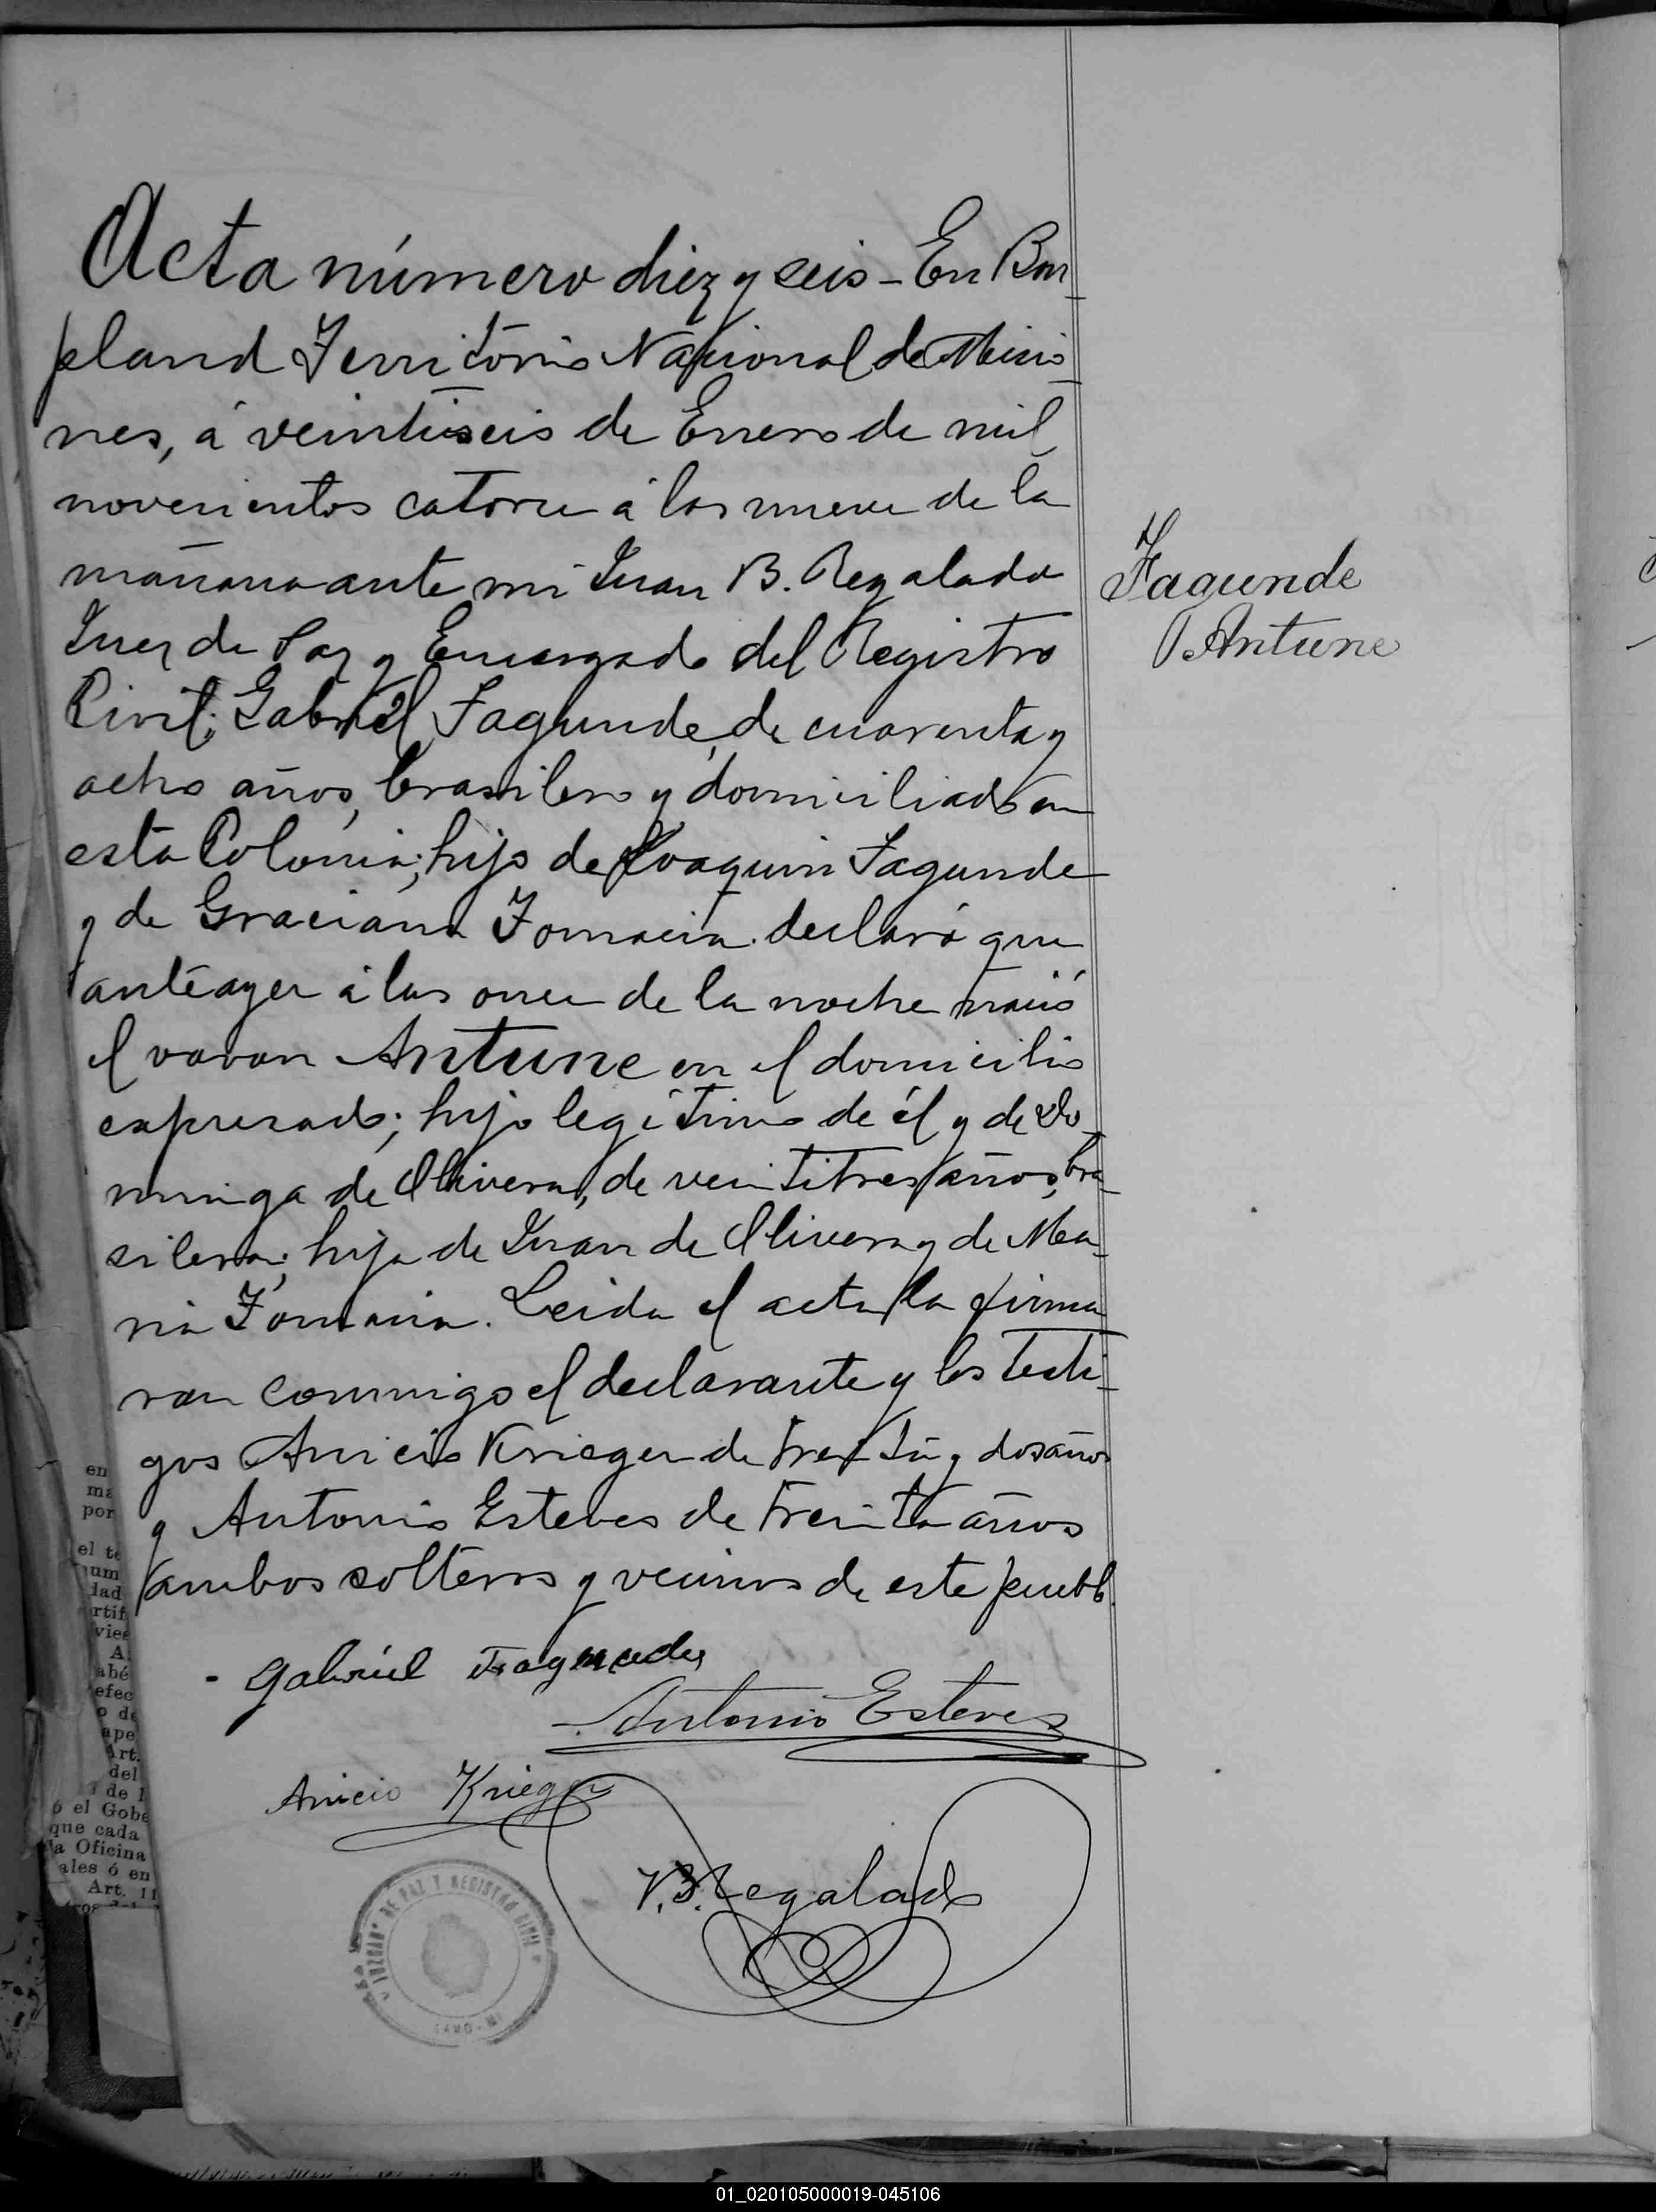 Acta número diez y seis - En Bon
pland Territorio Nacional de Misio
nes, á veintiseis de Enero de mil
novecientos catorce á las nueve de la
mañana ante mi Juan B. Regalado
Juez de Paz y Encargado del Registro
Civil; Gabriel Fagunde, de cuarenta y
ocho años, brasilero y domiciliado en
esta Colonia; hijo de Joaquin Fagunde
y de Graciana declaró que
anteayer á las once de la noche nació
el varon Antune en el domicilio
expresado; hijo legítimo de él y de Do
minga de Olivera, de veintitres años, bra
silera; hija de Juan de Olivera y de Ma
ria Leida el acta la firma
ron conmigo el declarante y los testi
gos Anicio Krieger de treinta y dos años
y Antonio Esteves de treinta años
ambos solteros y vecinos de este pueblo.
Fagunde
Antune
Gabriel
Antonio Esteves
Anicio Krieger
J.B. Regalado
JUZGADO DE PAZ Y REGISTRO CIVIL
en
ma
por
el te
um
dad
rtif
vies
A
abé
efec
o de
ape
Art.
del
de l
ó el Gobe
que cada
la Oficina
ales ó en
Art. 11
01_020105000019-045106